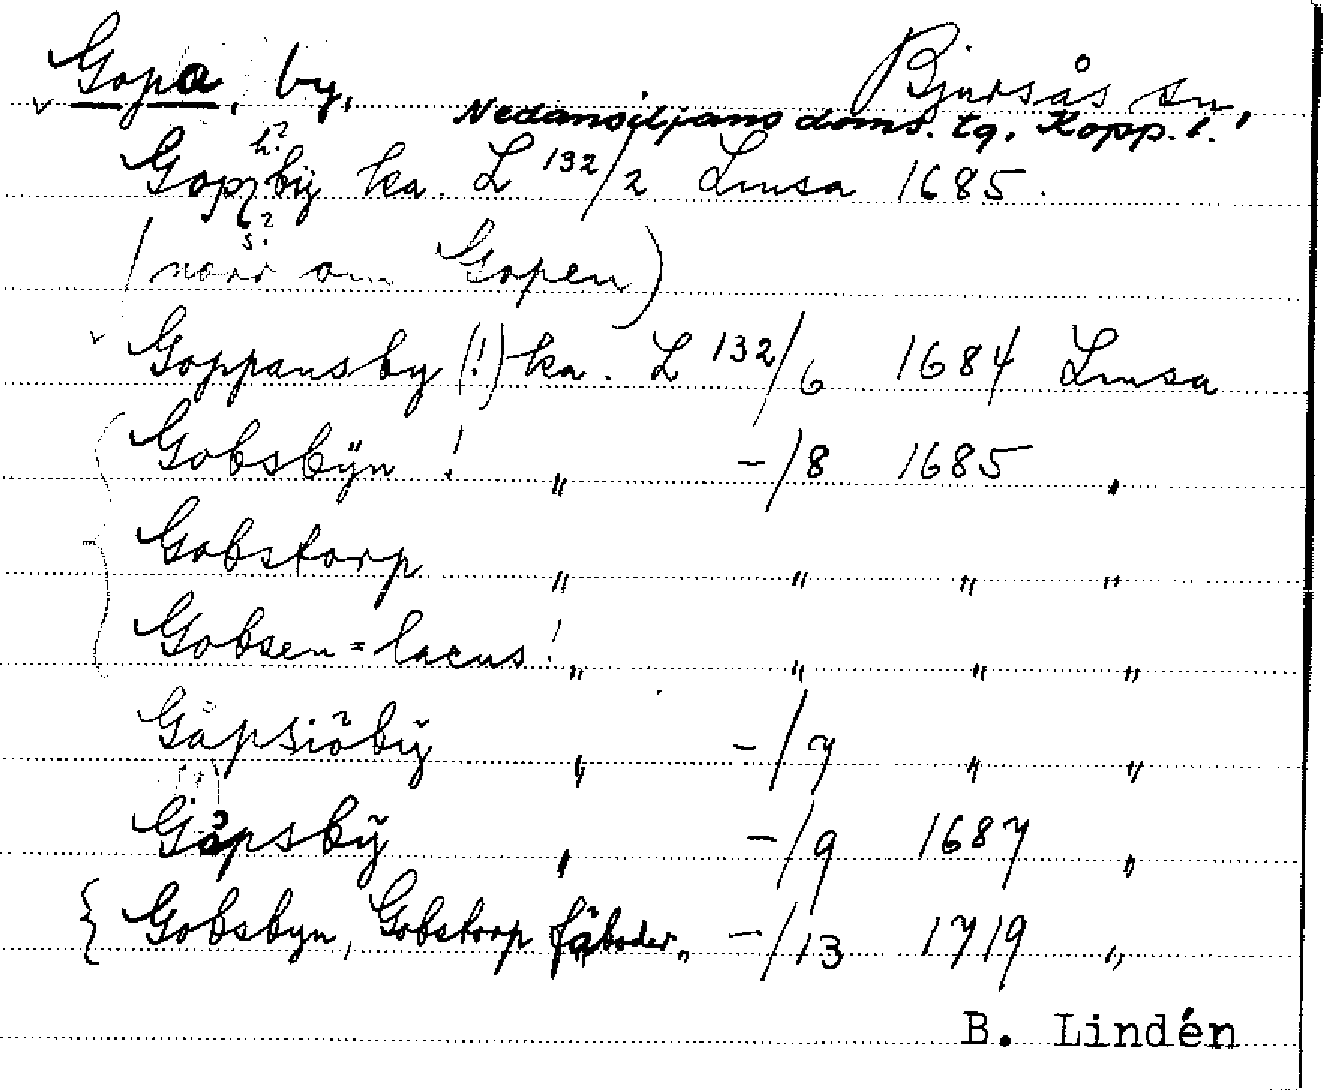 Gopa, by, Bjursås sn,
Nedansiljans doms. tg. Kopp. l.
h?
Gopzbÿ ka. L 132/2 Lmsa 1685.
s?
(norr om Gopen)
Goppansby (!) ka. L 132/6 1684 Lmsa
Gobsbÿn ! " -/8 1685 "
Gobstorp " " " "
Gobsen = lacus! " " " "
Gåpsiöbÿ " -/7 " "
(?)
Gåpsbÿ " -/9 1687 "
Gobsbyn, Gobstorp fäboder " -/13 1719 "
B. Lindén